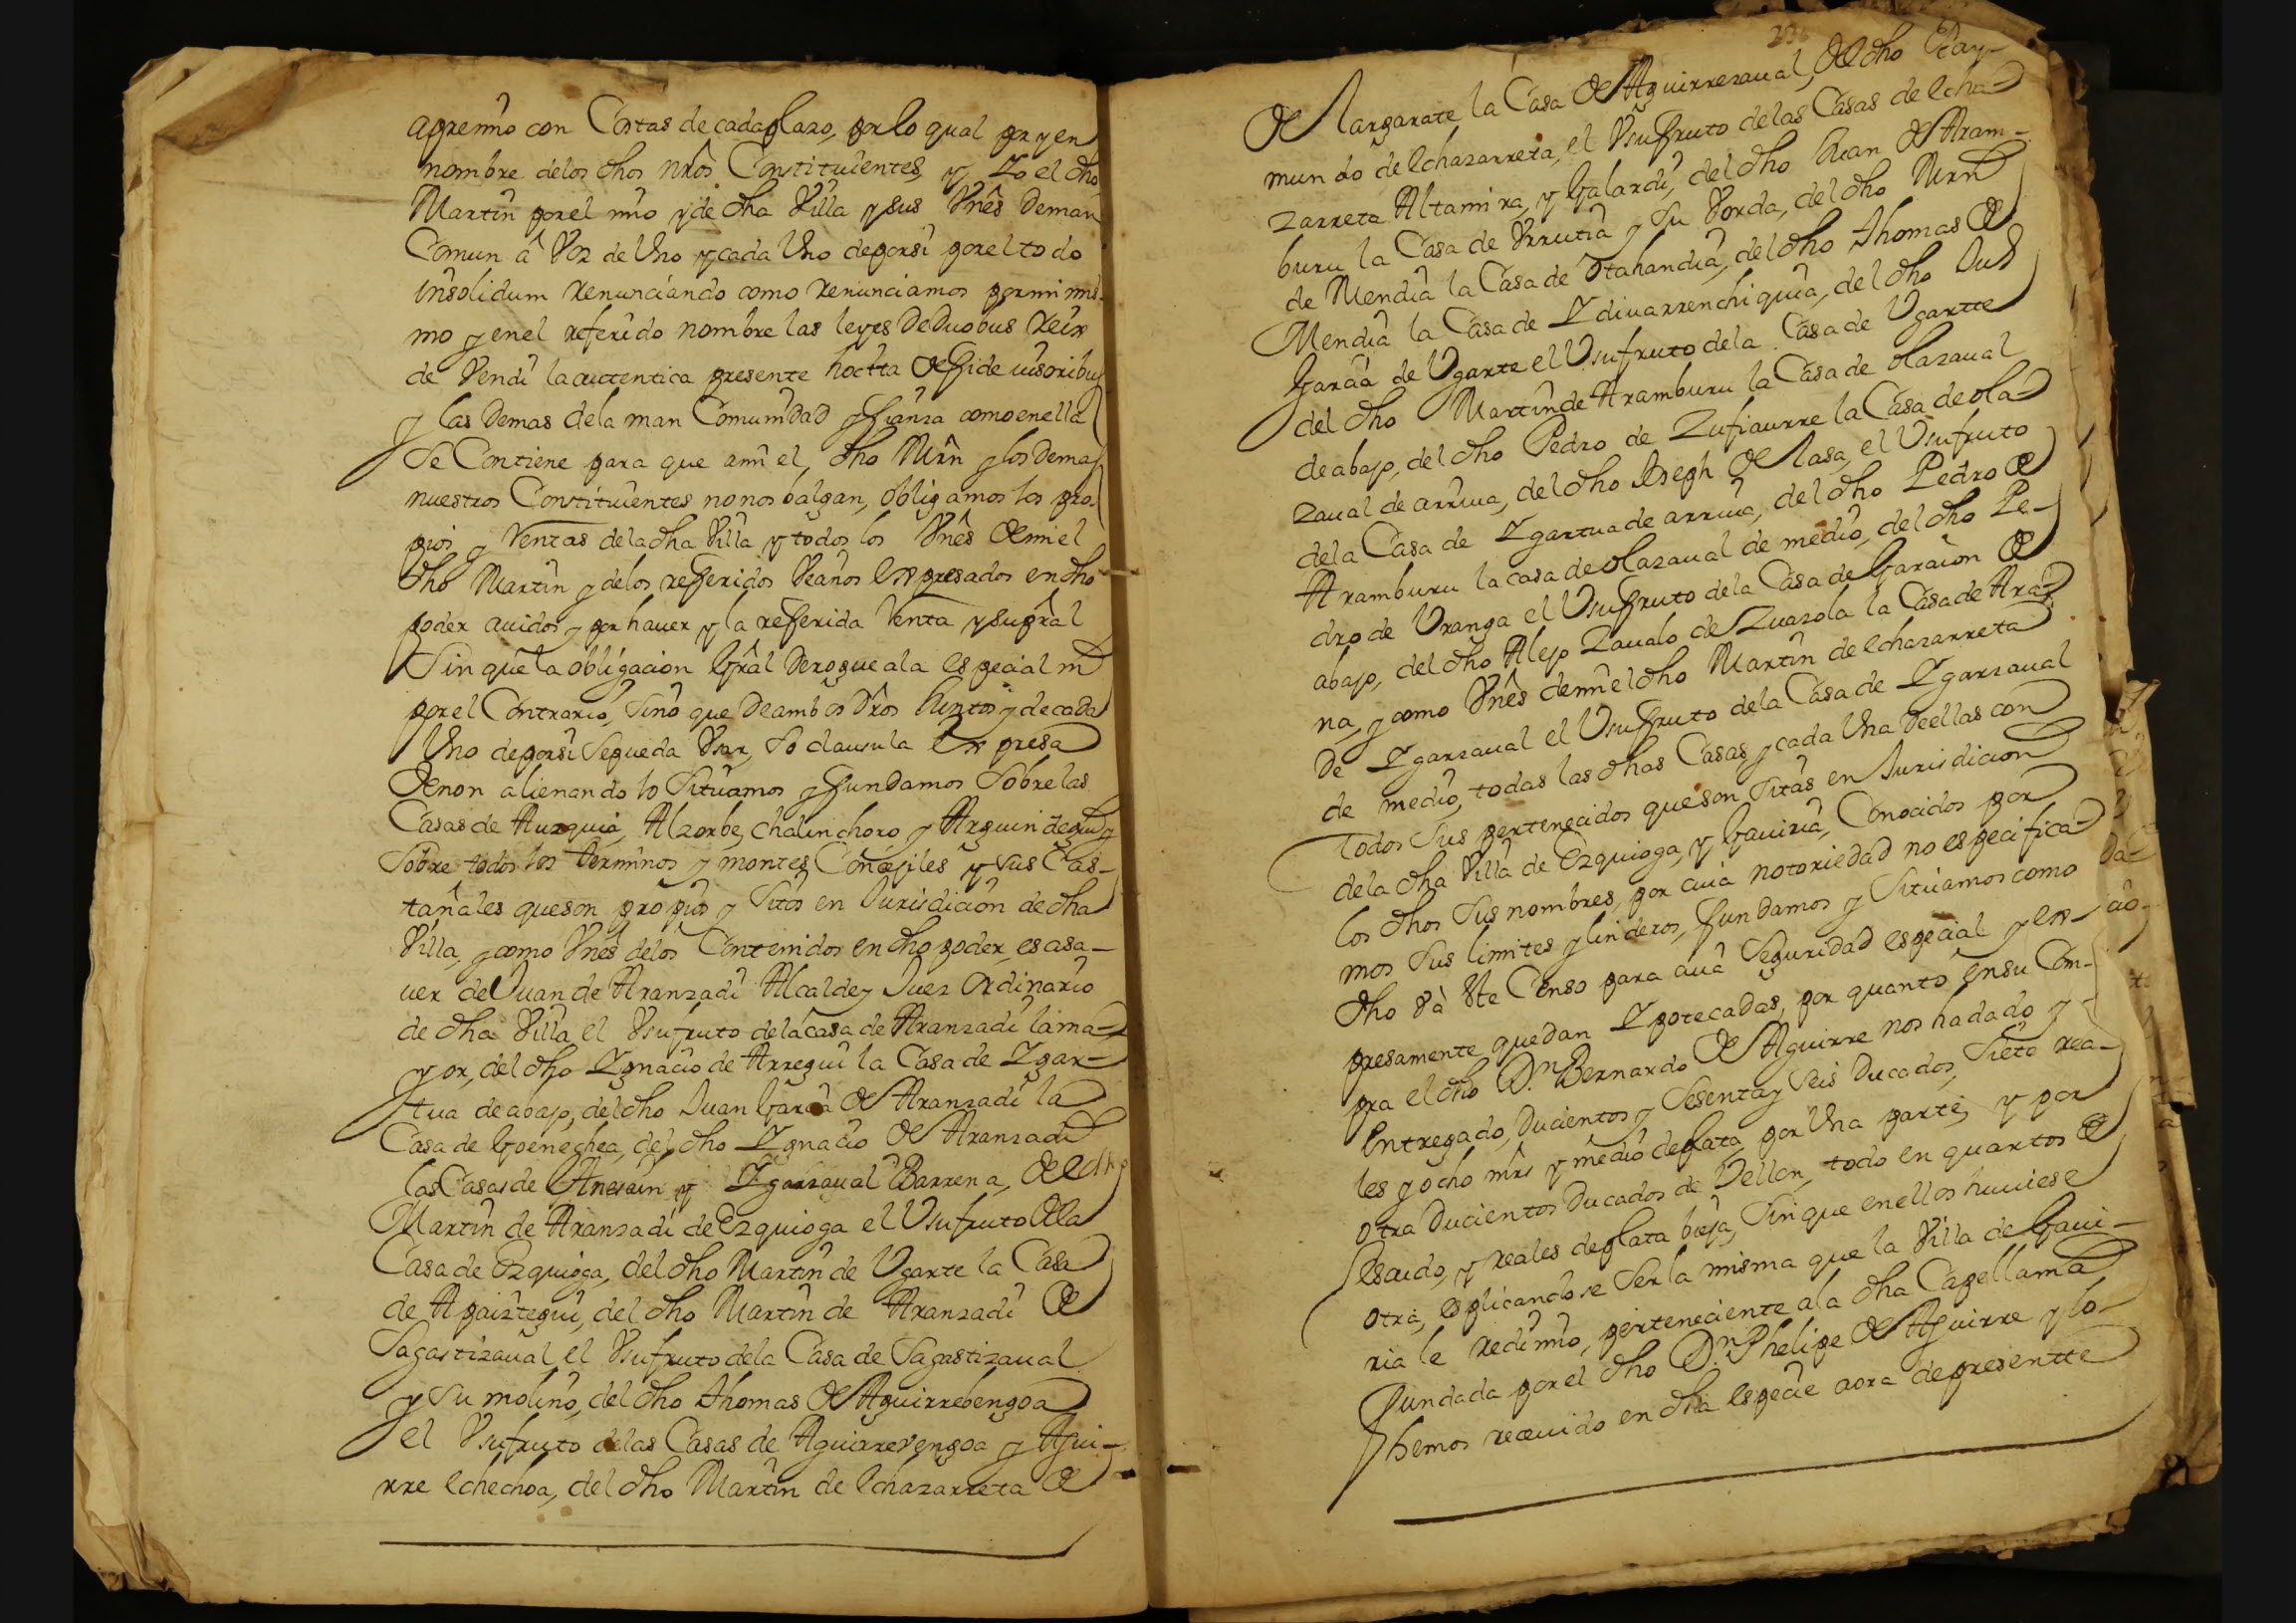 apremio con Costas de cada plazo, por lo qual por y en
nombre de los dhos nros Constituientes, y Yo el dho
Martin por el mio y de dha Villa y sus Vnês de man
Comun â Voz de Vno y cada Vno de por si por el todo
insolidum renunciando como renunciamos por mi mis-
mo y en el referido nombre las leyes de duobus reix
de Vendi la autentica presente hoctta de fide iusoribus
y las demas de la man Comunidad y fianza como en ella
Se Contiene para que ami el dho Mrn y los demas
nuestros Constituientes no nos balgan, obligamos los pro-
pios y Rentas de la dha Villa y todos los Vnês de mi el
dho Martin y de los referidos Veânos expresados en dho
poder auidos y por hauer y la referida Venta y su prâl
Sin que la obligacion Grâl derogue ala especial ni
por el Contrario, Sino que de ambos drôs Juntos y de cada
Vno de por si Se pueda Vsar, So clausula expresa
de non alienando lo Situamos y fundamos Sobre las
Casas de Auzquia, Alzorbe, Chalinchoro y Arguindegui y
Sobre todos los terminos y montes Concejiles y sus Cas-
tañales que son propios y Sitos en Jurisdicion de dha
Villa, y como Vnês de los Contenidos en dho poder, es asa-
uer de Juan de Aranzadi Alcalde y Juez Ordinario
de dha Villa el Vsufruto de la casa de Aranzadi la ma-
yor, del dho Ygnacio de Arregui la Casa de Ygar-
tua de abajo, del dho Juan Garcia de Aranzadi la
Casa de Goenechea, del dho Ygnacio de Aranzadi
las Casas de y Ygarzaual Barrena, del dho
Martin de Aranzadi de Ezquioga el Vsufruto de la
Casa de Ezquioga, del dho Martin de Vgarte la Casa
de Apaiztegui, del dho Martin de Aranzadi de
Sagastizaual el Vsufruto de la Casa de Sagastizaual
y Su molino, del dho Thomas de Aguirrebengoa
el Vsufruto de las Casas de Aguirrevengoa y Agui-
rre echechoa, del dho Martin de echazarreta de
de Margarate la Casa de Aguirrezaual, del dho Ray-
mundo de echazarreta, el Vsufruto de las Casas de echa-
zarreta Altamira, y Galardi, del dho Juan de Aram-
buru la Casa de Vrrutia y Su Borda, del dho Mrn
de Mendia la Casa de Otahandia, del dho Thomas de
Mendia la Casa de Ydiuarrenchiquia, del dho Jud
Garcia de Vgarte el Vsufruto de la Casa de Vgartte
del dho Martin de Aramburu la Casa de olazaual
de abajo, del dho Pedro de Zufiaurre la Casa de ola-
zaual de arriua, del dho Joseph de lasa, el Vsufruto
de la Casa de Ygartua de arriua, del dho Pedro de
Aramburu la casa de olazaual de medio, del dho Pe-
dro de Vranga el Vsufruto de la Casa de Garacion de
abajo, del dho Alejo Zaualo de Zuazola la Casa de Ara-
na, y como Vnês de mi el dho Martin de echazarreta
de Ygarzaual el Vsufruto de la Casa de Ygarzaual
de medio, todas las dhas Casas y cada Vna de ellas con
todos Sus pertenecidos que son Sitas en Jurisdicion
de la dha Villa de Ezquioga, y Gauiria, Conocidos por
los dhos Sus nombres, por cuia notoriedad no especifica-
mos Sus limites y linderos, fundamos y Situamos como
dho va este Censo para cuia Seguridad especial y ex-
presamente quedan Ypotecadas, por quanto en su Com-
pra el dho Dn. Bernardo de Aguirre nos ha dado y
entregado, Ducientos y Sesenta y Seis Ducados, Siete rea-
les y ocho mrs y medio de plata por Vna parte, y por
otra Ducientos Ducados de Vellon, todo en quartos de
escudo, y reales de plata bieja, Sin que en ellos huuiese
otra, explicandose Ser la misma que la Villa de Gaui-
ria le redimio, perteneciente ala dha Capellania
fundada por el dho Dn. Phelipe de Aguirre y lo
hemos receuido en dha especie aora de presentte